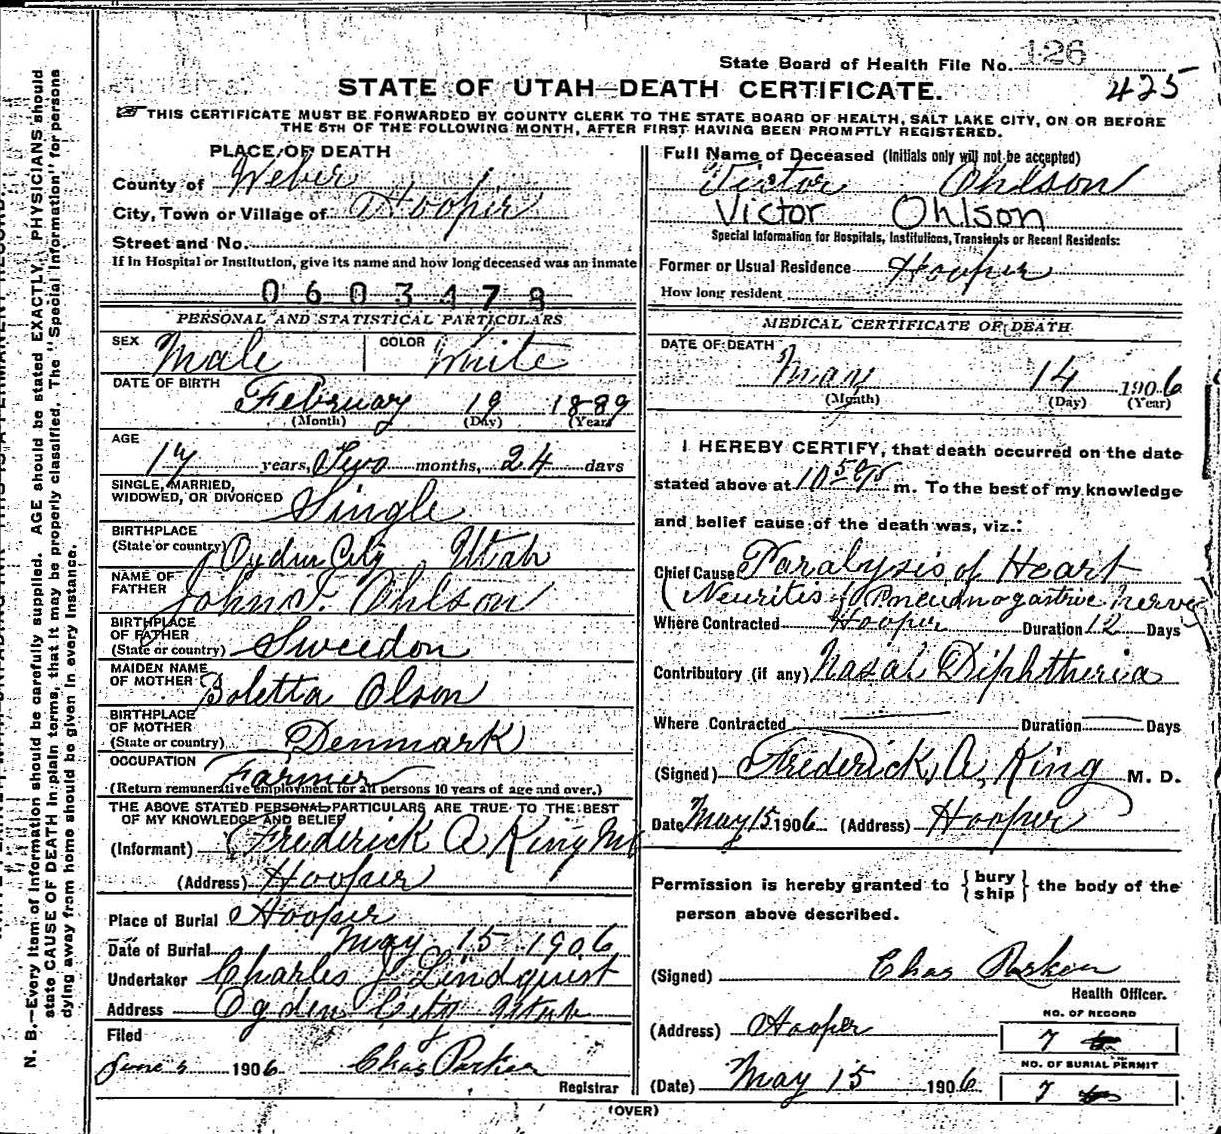 State Board of Health File No. 126
425
STATE OF UTAH—DEATH CERTIFICATE.
THIS CERTIFICATE MUST BE FORWARDED BY COUNTY CLERK TO THE STATE BOARD OF HEALTH, SALT LAKE CITY, ON OR BEFORE
THE 5TH OF THE FOLLOWING MONTH, AFTER FIRST HAVING BEEN PROMPTLY REGISTERED.
PLACE OF DEATH
County of Weber
City, Town or Village of Hooper
Street and No.
If in Hospital or Institution, give its name and how long deceased was an inmate
0603478
PERSONAL AND STATISTICAL PARTICULARS
SEX Male COLOR White
DATE OF BIRTH February 19 1889
(Month) (Day) (Year)
AGE
17 years, Two months, 24 days
SINGLE, MARRIED,
WIDOWED, OR DIVORCED Single
BIRTHPLACE
(State or country) Ogden City, Utah
NAME OF
FATHER John T. Ohlson
BIRTHPLACE
OF FATHER
(State or country) Sweedon
MAIDEN NAME
OF MOTHER Boletta Olson
BIRTHPLACE
OF MOTHER
(State or country) Denmark
OCCUPATION Farmer
(Return remunerative employment for all persons 10 years of age and over.)
THE ABOVE STATED PERSONAL PARTICULARS ARE TRUE TO THE BEST
OF MY KNOWLEDGE AND BELIEF
(Informant) Frederick A King MD
(Address) Hooper
Place of Burial Hooper
Date of Burial May 15 1906
Undertaker Charles J Lindquist
Address Ogden City Utah
Filed
June 5 1906 Chas Parker
Registrar
Full Name of Deceased (Initials only will not be accepted)
Victor Ohlson
Victor Ohlson
Special Information for Hospitals, Institutions, Transients or Recent Residents:
Former or Usual Residence Hooper
How long resident
MEDICAL CERTIFICATE OF DEATH
DATE OF DEATH
May 14 1906
(Month) (Day) (Year)
I HEREBY CERTIFY, that death occurred on the date
stated above at 10 m. To the best of my knowledge
and belief cause of the death was, viz.:
Chief Cause Paralysis of Heart
(Neuritis of Pneumogastric nerve)
Where Contracted Hooper Duration 12 Days
Contributory (if any) Nasal Diphtheria
Where Contracted — Duration — Days
(Signed) Frederick A. King M. D.
Date May 15 1906 (Address) Hooper
Permission is hereby granted to {bury
ship} the body of the
person above described.
(Signed) Chas Parker
Health Officer.
(Address) Hooper
NO. OF RECORD
7
(Date) May 15 1906
NO. OF BURIAL PERMIT
7
(OVER)
N. B.—Every item of information should be carefully supplied. AGE should be stated EXACTLY. PHYSICIANS should
state CAUSE OF DEATH in plain terms, that it may be properly classified. The "Special Information" for persons
dying away from home should be given in every instance.